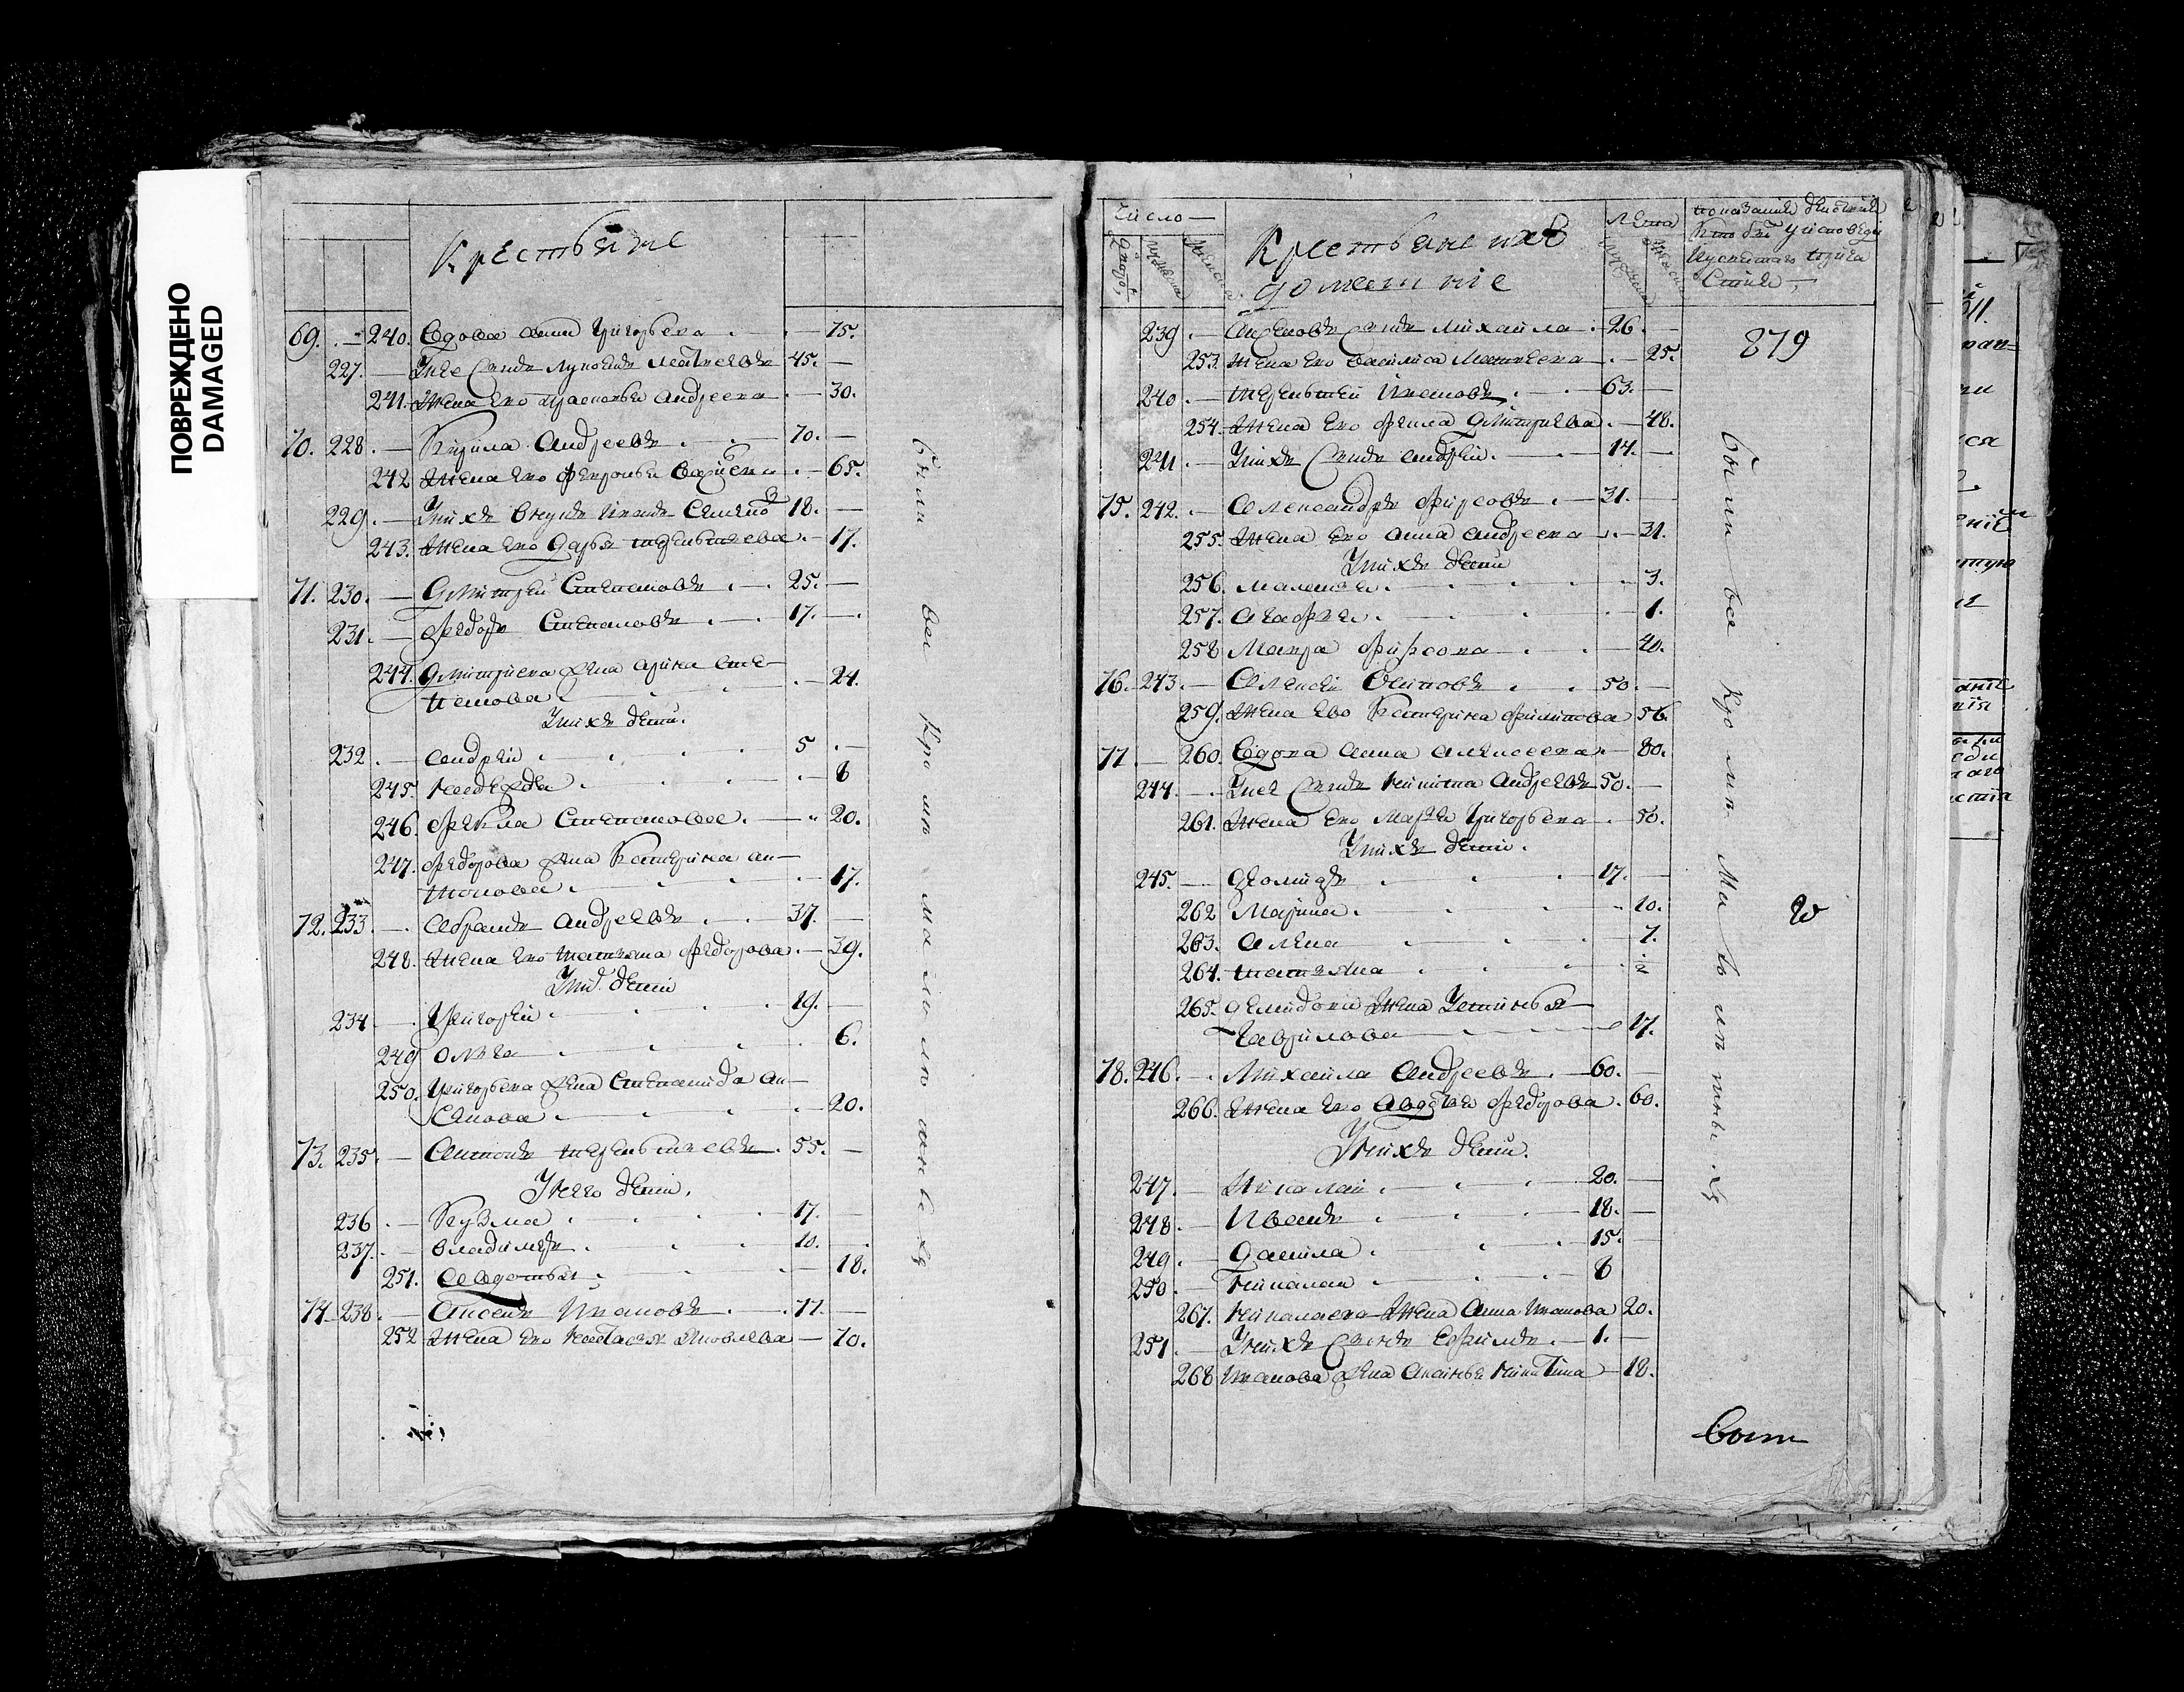 ПОВРЕЖДЕНО
DAMAGED
Крестьяне
69. — 240. Вдова Анна Григорьева — 75.
227. — Унее сынъ Лукоянъ Матвеевъ 45. —
241. Жена его Прасковья Андреева — 30.
70. 228. — Кирила Андреевъ 70. —
242 Жена его Февронья — 65.
229. — Унихъ внукъ Иванъ Семено 18. —
243. Жена его Дарья Терентьева — 17.
71. 230. — Дмитрей Степановъ — 25. —
231. — Федоръ Степановъ — 17. —
244. Дмитриева жена Арина Сте-
панова — 24.
Унихъ дети.
232. — Андрей 5 —
245. Надежда — 8
246. Фекла Степановъа — 20.
247. Федорова жена Катерина Ан-
тонова — 17.
72. 233. — Абрамъ Андреевъ 37. —
248. Жена его Татьяна Федорова — 39.
Унихъ дети
234 — Григорей 19. —
249 Ольга 6.
250. Григорьева жена Степанида Ан-
сенова — 20.
73. 235. — Антонъ Терентьевъ 55. —
Унего дети.
236 — Кузма 17. —
237. — Владимеръ 10.
251. Авдотья — 18.
74 238. — Аксенъ Ивановъ 77. —
252 Жена его Настасья Яковлева — 70.
были все кромѣ малолѣтныхъ
Число
Дворо
Мужеска
Женска
Крестьяне ихъ
домашние
Лета
показание действия
кто былъ уисповеди
879
239 — Аксеновъ сынъ Михаила 26. —
253. Жена его Василиса Матвеева — 25.
240 — Терентей Ивановъ 63. —
254. Жена его Фекла Дмитриева — 48.
241. — Унихъ сынъ Андрей 14. —
75. 242. — Александръ Фирсовъ — 31. —
255. Жена его Анна Андреева — 31.
Унихъ дети
256. Маланья 3.
257. Агафья — 1.
258 Мавра Фирсова — 40.
76. 243. — Алексей Осиповъ 50. —
259. Жена ево Катерина Филипова 56.
77 — 260. Вдова Анна Алексеева — 80.
244. — Унее сынъ Никита Андреевъ 50. —
261. Жена его Марья Григорьева — 50.
Унихъ дети.
245. — Демидъ 17. —
262 Марина 10.
263. Алена 7.
264. Татьяна 2
265. Демидова жена Устинья
Гаврилова 17.
78. 246. — Михаила Андреевъ — 60. —
266. Жена его Авдотья Федорова 60.
Унихъ дети.
247. — Николай 20. —
248. — Иванъ 18. —
249. — Данила 15. —
250. — Николай 8
267. Николаева жена Анна Иванова 20.
251. — Унихъ сынъ Ефимъ — 1. —
268 Иванова жена Аксинья Никитина — 18.
были все кромѣ малолѣтныхъ